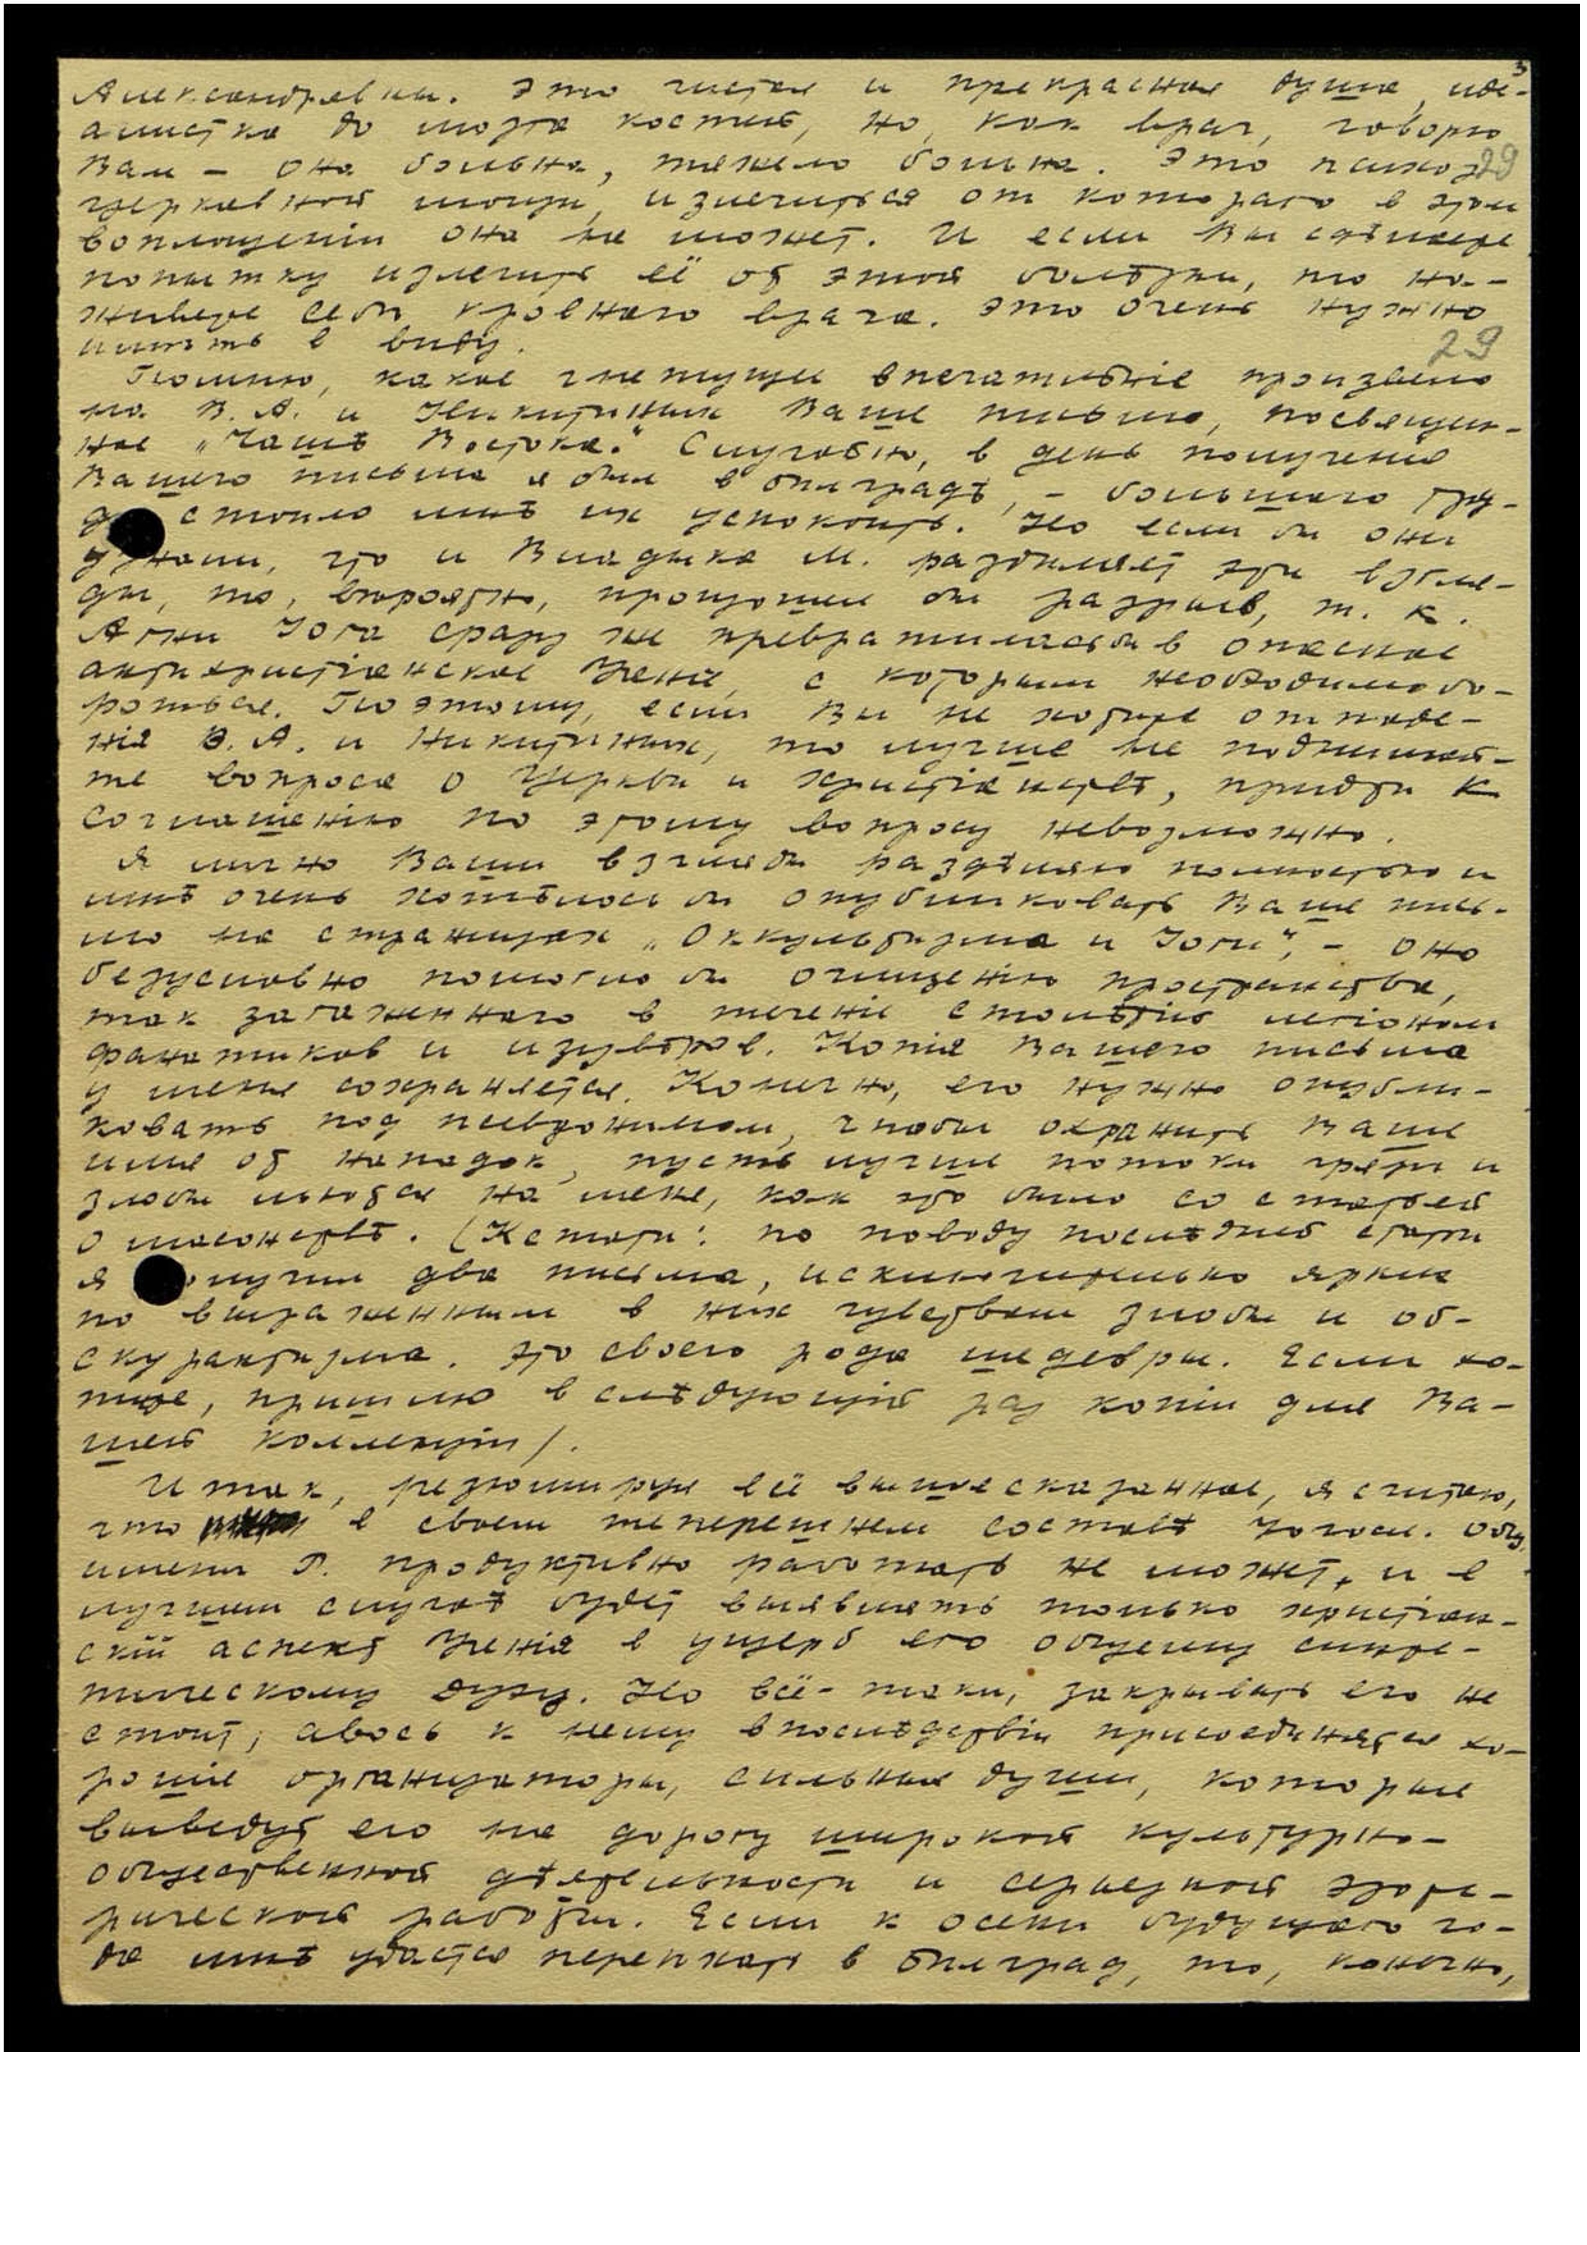 3
Александровны. Это чистая и прекрасная душа, иде-
алистка до мозга костей, но, как врач, говорю
Вам – она больна, тяжело больна. Это психоз
29
церковной мощи, излечиться от котораго в этом
воплощеніи она не может. И если Вы сдѣлаете
попытку излечить её от этой болѣзни, то на-
живете себѣ кровнаго врага. Это очень нужно
имѣть в виду.
29
Помню, какое гнетущее впечатлѣніе произвело
на В. А. и Никитиных Ваше письмо, посвящен-
ное „Чашѣ Востока.“ Случайно, в день полученія
Вашего письма я был в Бѣлградѣ, – большого тру-
да стоило мнѣ их успокоить. Но если бы они
узнали, что и Владыка М. раздѣляет эти взгля-
ды, то, вѣроятно, произошел бы разрыв, т. к.
Агни Йога сразу же превратилась бы в опасное
антихристіанское Ученіе, с которым необходимо бо-
роться. Поэтому, если Вы не хотите отпаде-
нія В. А. и Никитиных, то лучше не поднимай-
те вопроса о Церкви и христіанствѣ, придти к
соглашенію по этому вопросу невозможно.
Я лично Ваши взгляды раздѣляю полностью и
мнѣ очень хотѣлось бы опубликовать Ваше пись-
мо на страницах „Оккультизма и Йоги“, – оно
безусловно помогло бы очищенію пространства,
так загаженнаго в теченіе столѣтій легіоном
фанатиков и изувѣров. Копія Вашего письма
у меня сохраняется. Конечно, его нужно опубли-
ковать под псевдонимом, чтобы охранить Ваше
имя от нападок, пусть лучше потоки грязи и
злобы льются на меня, как это было со статьей
о масонствѣ. (Кстати: по поводу послѣдней статьи
я получил два письма, исключительно яркие
по выраженным в них чувствам злобы и об-
скурантизма. Это своего рода шедевры. Если хо-
тите, пришлю в слѣдующій раз копіи для Ва-
шей коллекціи).
Итак, резюмируя всё вышесказанное, я считаю,
что в своем теперешнем составѣ Югосл. Общ.
имени Р. продуктивно работать не может, и в
лучшем случаѣ будет выявлять только христіан-
скій аспект Ученія в ущерб его общему синте-
тическому духу. Но всё-таки, закрывать его не
стоит; авось к нему впослѣдствіи присоединятся хо-
рошіе организаторы, сильныя души, которые
выведут его на дорогу широкой культурно-
общественной дѣятельности и серьезной эзоте-
рической работы. Если к осени будущаго го-
да мнѣ удастся переѣхать в Бѣлград, то, конечно,